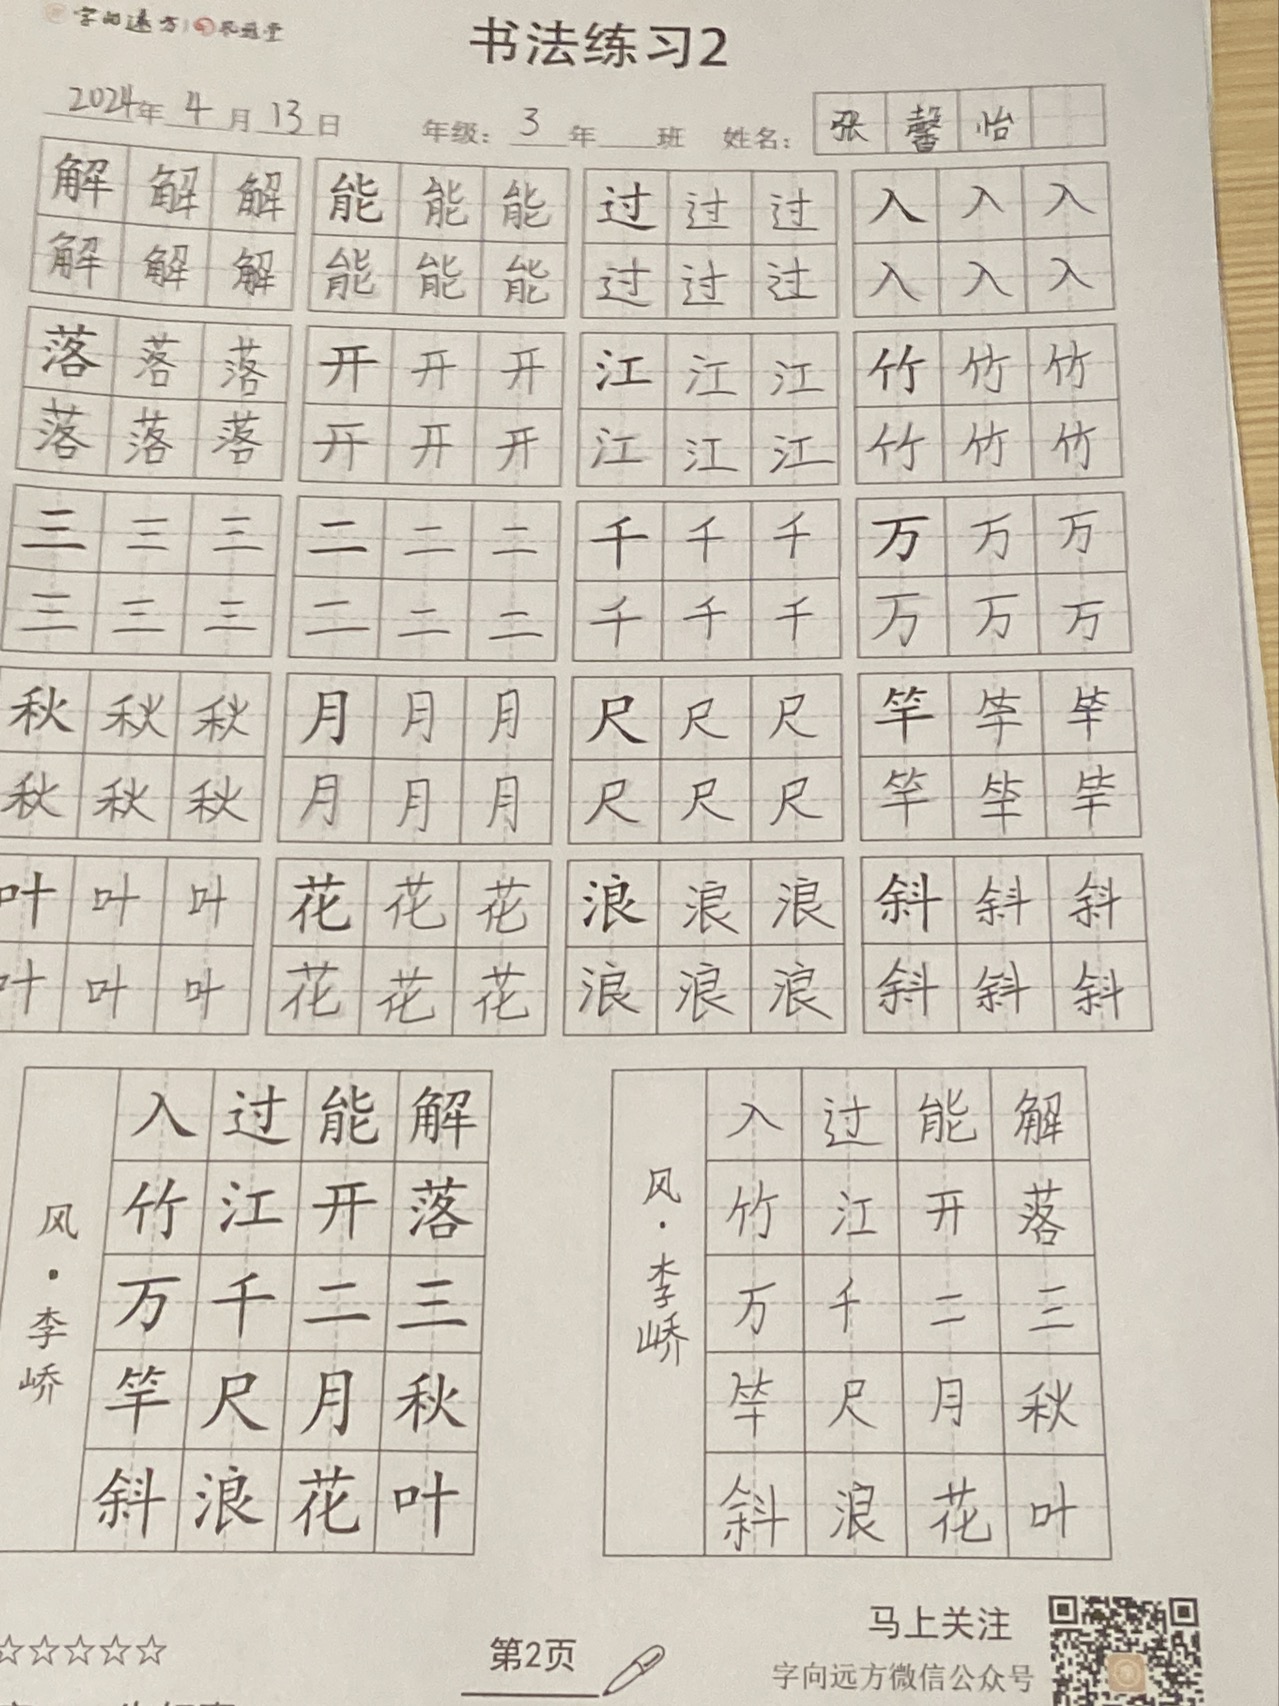 字向远方
书法练习2
2024年4月13日 年级：3年 班 姓名：张馨怡
解解解 能能能 过过过 入入入
解解解 能能能 过过过 入入入
落落落 开开开 江江江 竹竹竹
落落落 开开开 江江江 竹竹竹
三三三 二二二 千千千 万万万
三三三 二二二 千千千 万万万
秋秋秋 月月月 尺尺尺 竿竿竿
秋秋秋 月月月 尺尺尺 竿竿竿
叶叶叶 花花花 浪浪浪 斜斜斜
叶叶叶 花花花 浪浪浪 斜斜斜
解落三秋叶
能开二月花
过江千尺浪
入竹万竿斜
风·李峤
解落三秋叶
能开二月花
过江千尺浪
入竹万竿斜
风·李峤
☆☆☆☆☆
第2页
马上关注
字向远方微信公众号